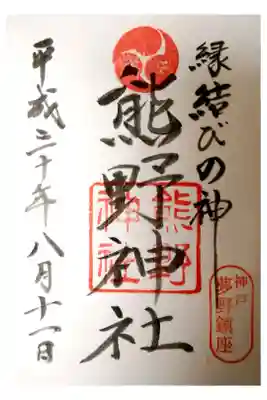 縁結びの神
神戸
夢野鎮座
熊野神社
熊野
神社
平成二十年八月十一日